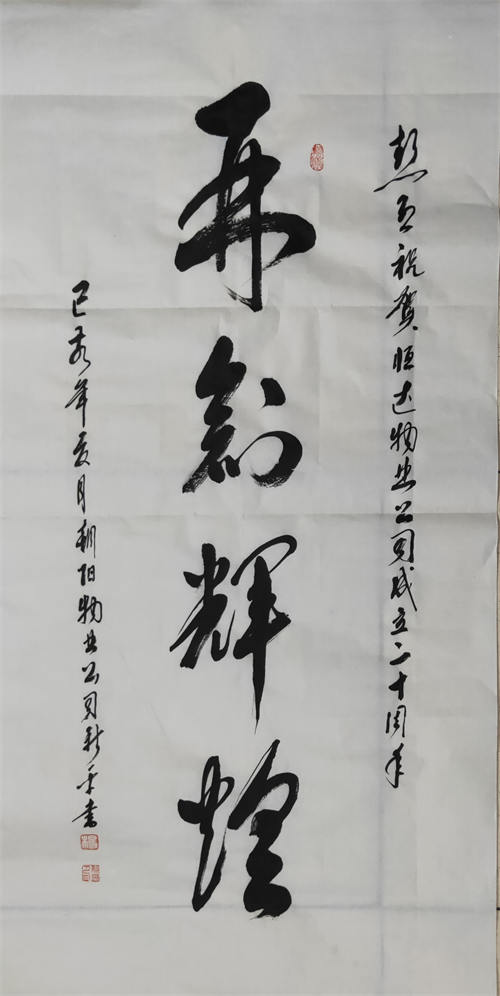 热烈祝贺恒达物业公司成立二十周年
再創輝煌
己亥年亥月朝阳物业公司新平書